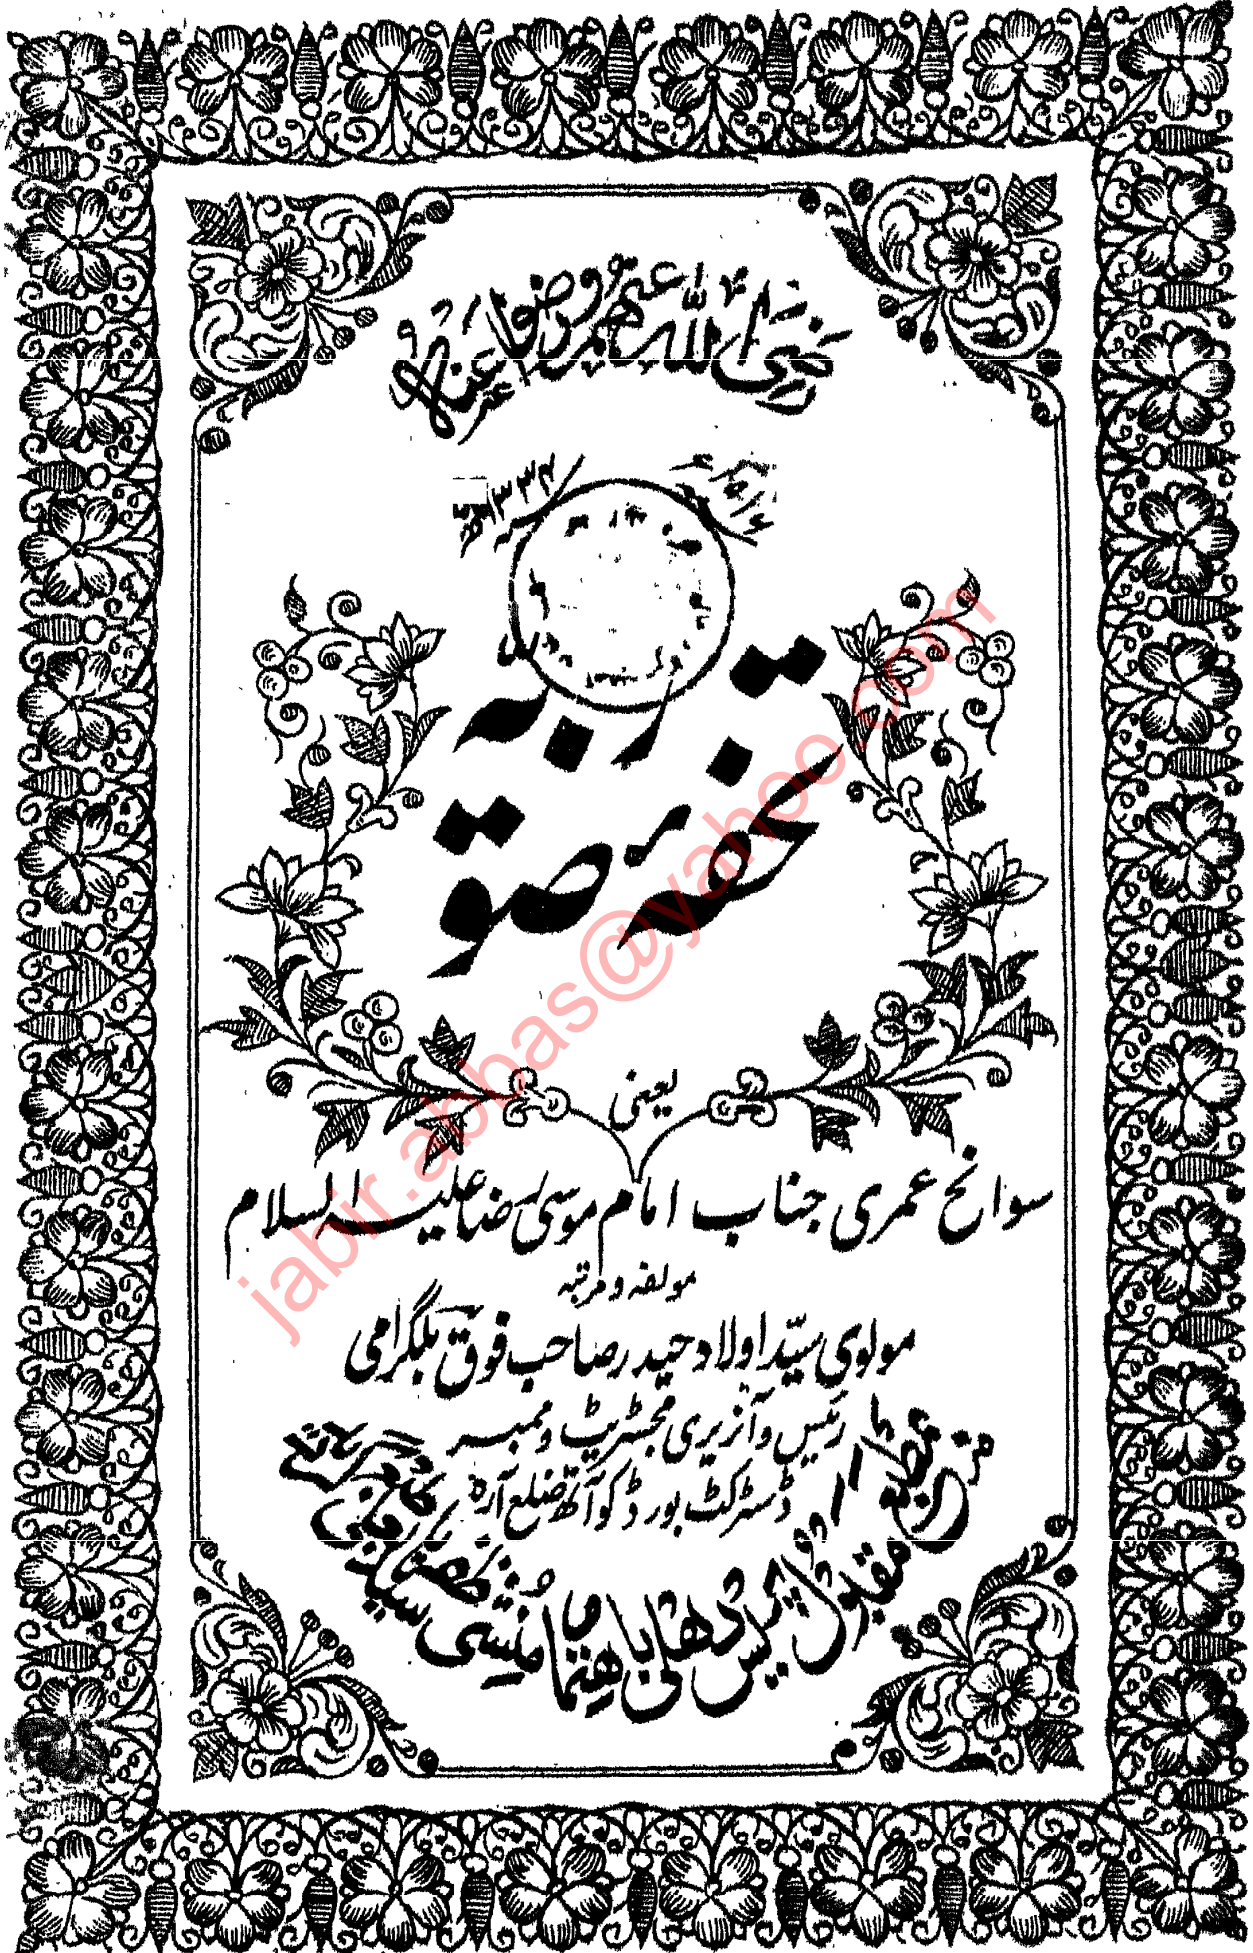 رضی اللہ عنہم و رضوا عنہ
۱۳۳۴
تحفہ رضویہ
یعنی
سوانح عمری جناب امام موسی رضا علیہ السلام
مولفہ و مرتبہ
مولوی سید اولاد حیدر صاحب فوق بلگرامی
رئیس و آنریری مجسٹریٹ و ممبر
ڈسٹرکٹ بورڈ کواتھ ضلع آرہ
مقبول پریس دھلی باھتمام منشی سید
jabir.abbas@yahoo.com